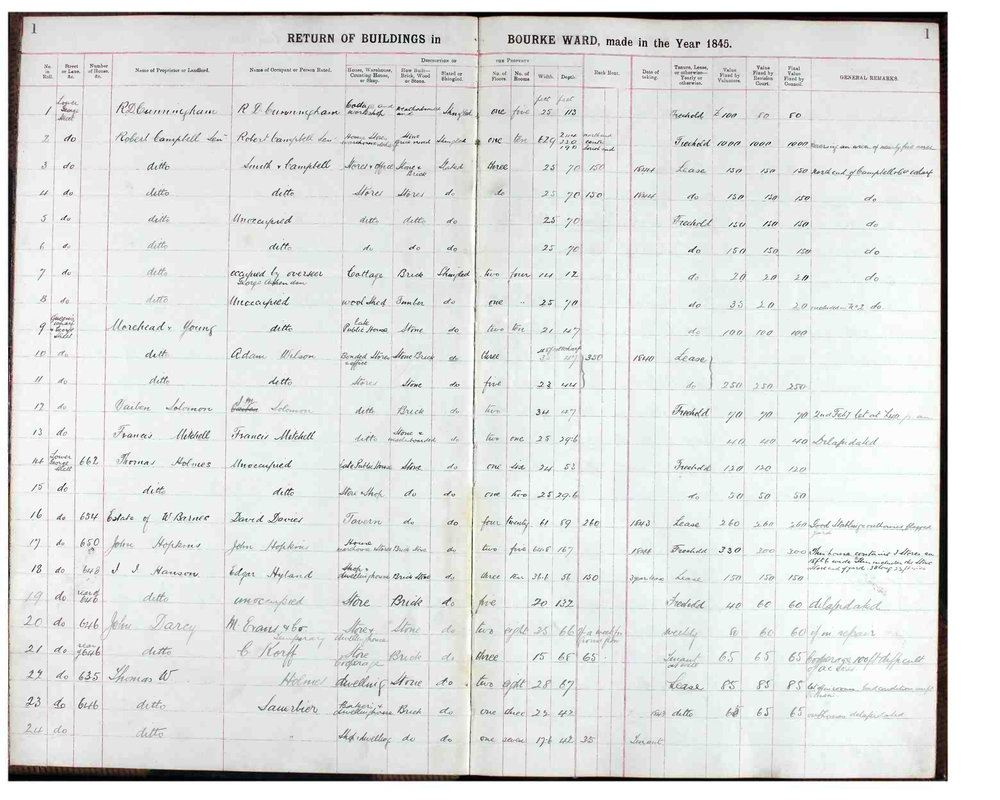 1
RETURN OF BUILDINGS in BOURKE WARD, made in the Year 1845.
1
DESCRIPTION OF THE PROPERTY
No. in Roll. Street or Lane, &c. Number of House, &c. Name of Proprietor or Landlord. Name of Occupant or Person Rated. House, Warehouse, Counting House, or Shop. How Built—Brick, Wood or Stone. Slated or Shingled. No. of Floors. No. of Rooms Width. Depth. Rack Rent. Date of taking. Tenure, Lease, or otherwise—Yearly or otherwise. Value Fixed by Valuators. Value Fixed by Revision Court. Final Value Fixed by Council. GENERAL REMARKS.
feet feet
1 Lower George Street R D Cunningham R D Cunningham Cottage and workshop weatherboard Shingled one five 25 113 Freehold £100 80 80
2 do Robert Campbell Senr Robert Campbell Sen House Store Stone Shingled one ten 629 220 190 north end south end Freehold 1000 1000 1000 Covering an area of nearly five acres
3 do ditto Smith & Campbell Stores & office Stone & Brick Slated three 25 70 150 1844 Lease 150 150 150 north end of Campbell & Co wharf
4 do ditto ditto Stores Stores do do 25 70 150 1844 do 150 150 150 do
5 do ditto Unoccupied ditto ditto do 25 70 Freehold 150 150 150 do
6 do ditto do do do 25 70 do 150 150 150 do
7 do ditto occupied by overseer George Cottage Brick Shingled two four 14 12 do 20 20 20 do
8 do ditto Unoccupied wool Shed Timber do one " 25 70 do 35 20 20 do.
9 Queens wharf & George Street Morehead & Young ditto late Public House Stone do two ten 21 47 do 100 100 100
10 do ditto Adam Wilson Bonded Stores & office Stone Brick do three 350 1840 Lease
11 do ditto ditto Stores Stone do five 23 44 do 250 250 250
12 do Vaiben Solomon Solomon ditto Brick do two 34 47 Freehold 70 70 70 2nd
13 do Francis Mitchell Francis Mitchell ditto Stone & do two one 25 29.6 40 40 40 Delapidated
14 Lower George Street 662 Thomas Holmes Unoccupied late Public House Stone do one six 24 53 Freehold 120 120 120
15 do ditto ditto Store & Shop do do one two 25 29.6 do 50 50 50
16 do 654 Estate of W Barnes David Davies Tavern do do four twenty 61 89 260 1843 Lease 260 260 260 Good Stabling & outhouses flagged yard
17 do 650 John Hopkins John Hopkins House Brick Stone do two five 167 1844 Freehold 330 300 300 This house contains 3 Stores
18 do 648 J J Hanson Edgar Hyland Shop & dwelling house Brick Stone do three ten 56 150 3 years lease Lease 150 150 150
19 do rear of 646 ditto unoccupied Store Brick do five 20 132 Freehold 40 60 60 delapidated
20 do 646 John Darcy M. Evans & Co temporary Store & dwelling house Stone do two eight 25 66 weekly 80 60 60 repair
21 do rear of 646 ditto C Korff Store Cooperage Brick do three 15 65 65 Tenant at will 65 65 65 Cooperage 100 ft difficult
22 do 635 Thomas W Holmes dwelling Stone do two eight 28 67 Lease 85 85 85
23 do 646 ditto Saurbier Bakery & dwelling house Brick do one three 22 42 1843 ditto 65 65 65 outhouses delapidated
24 do ditto " Shop & dwelling do do one seven 17.6 42 35 Tenant